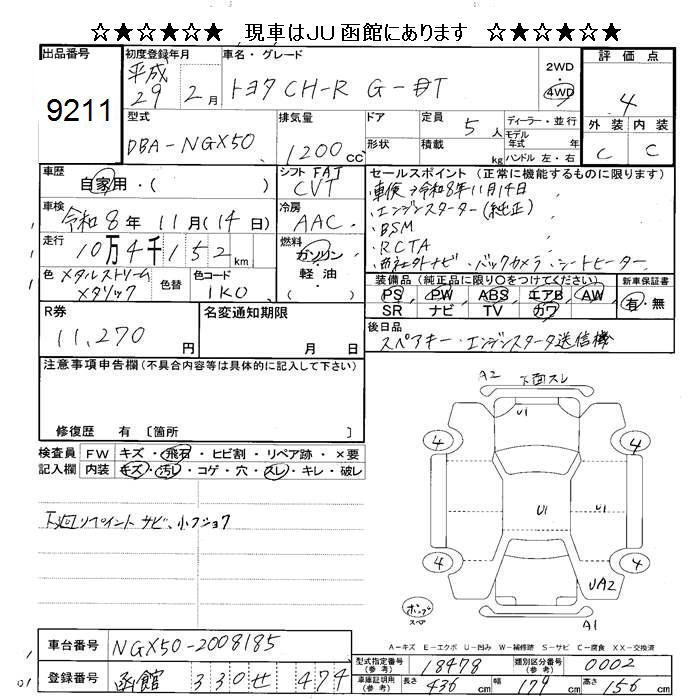 ☆★☆★☆★ 現車はJU函館にあります ☆★☆★☆★
出品番号
9211
初度登録年月
平成
29 2月
車名・グレード
トヨタ CH-R G-T
2WD
・
4WD
評価点
4
外装 内装
C C
型式
DBA-NGX50
排気量
1200cc
ドア
形状
定員
5人
積載
kg
ディーラー・並行
モデル
年式 年
ハンドル 左・右
車歴
自家用・( )
シフト FAT
CVT
車検
令和8年11月(14日)
冷房
AAC
走行
10万4千152km
燃料
ガソリン
軽油
( )
色 メタルストリーム
メタリック
色替
色コード
1K0
セールスポイント (正常に機能するものに限ります)
・車検→令和8年11月14日
・エンジンスターター(純正)
・BSM
・RCTA
・ナビ・バックカメラ・シートヒーター
装備品 (純正品に限り○をつけてください)
PS PW ABS エアB AW
SR ナビ TV カワ
新車保証書
有・無
R券
11,270円
名変通知期限
月 日
後日品
スペアキー・エンジンスタータ送信機
注意事項申告欄(不具合内容等は具体的に記入して下さい)
修復歴 有 〔箇所 〕
検査員
記入欄
FW キズ・飛石・ヒビ割・リペア跡・×要
内装 キズ・汚レ・コゲ・穴・スレ・キレ・破レ
下廻リペイント サビ、小フショク
A2 下面スレ
U1
4 4
U1 U1
4 4
UA2
A1
ポンプ
スペア
A-キズ E-エクボ U-凹み W-補修跡 S-サビ C-腐食 XX-交換済
車台番号
NGX50-2008185
登録番号
函館 330 せ 474
型式指定番号
(参考)
18478
類別区分番号
(参考)
0002
車庫証明用
(参考)
長さ 436cm 幅 179cm 高さ 156cm